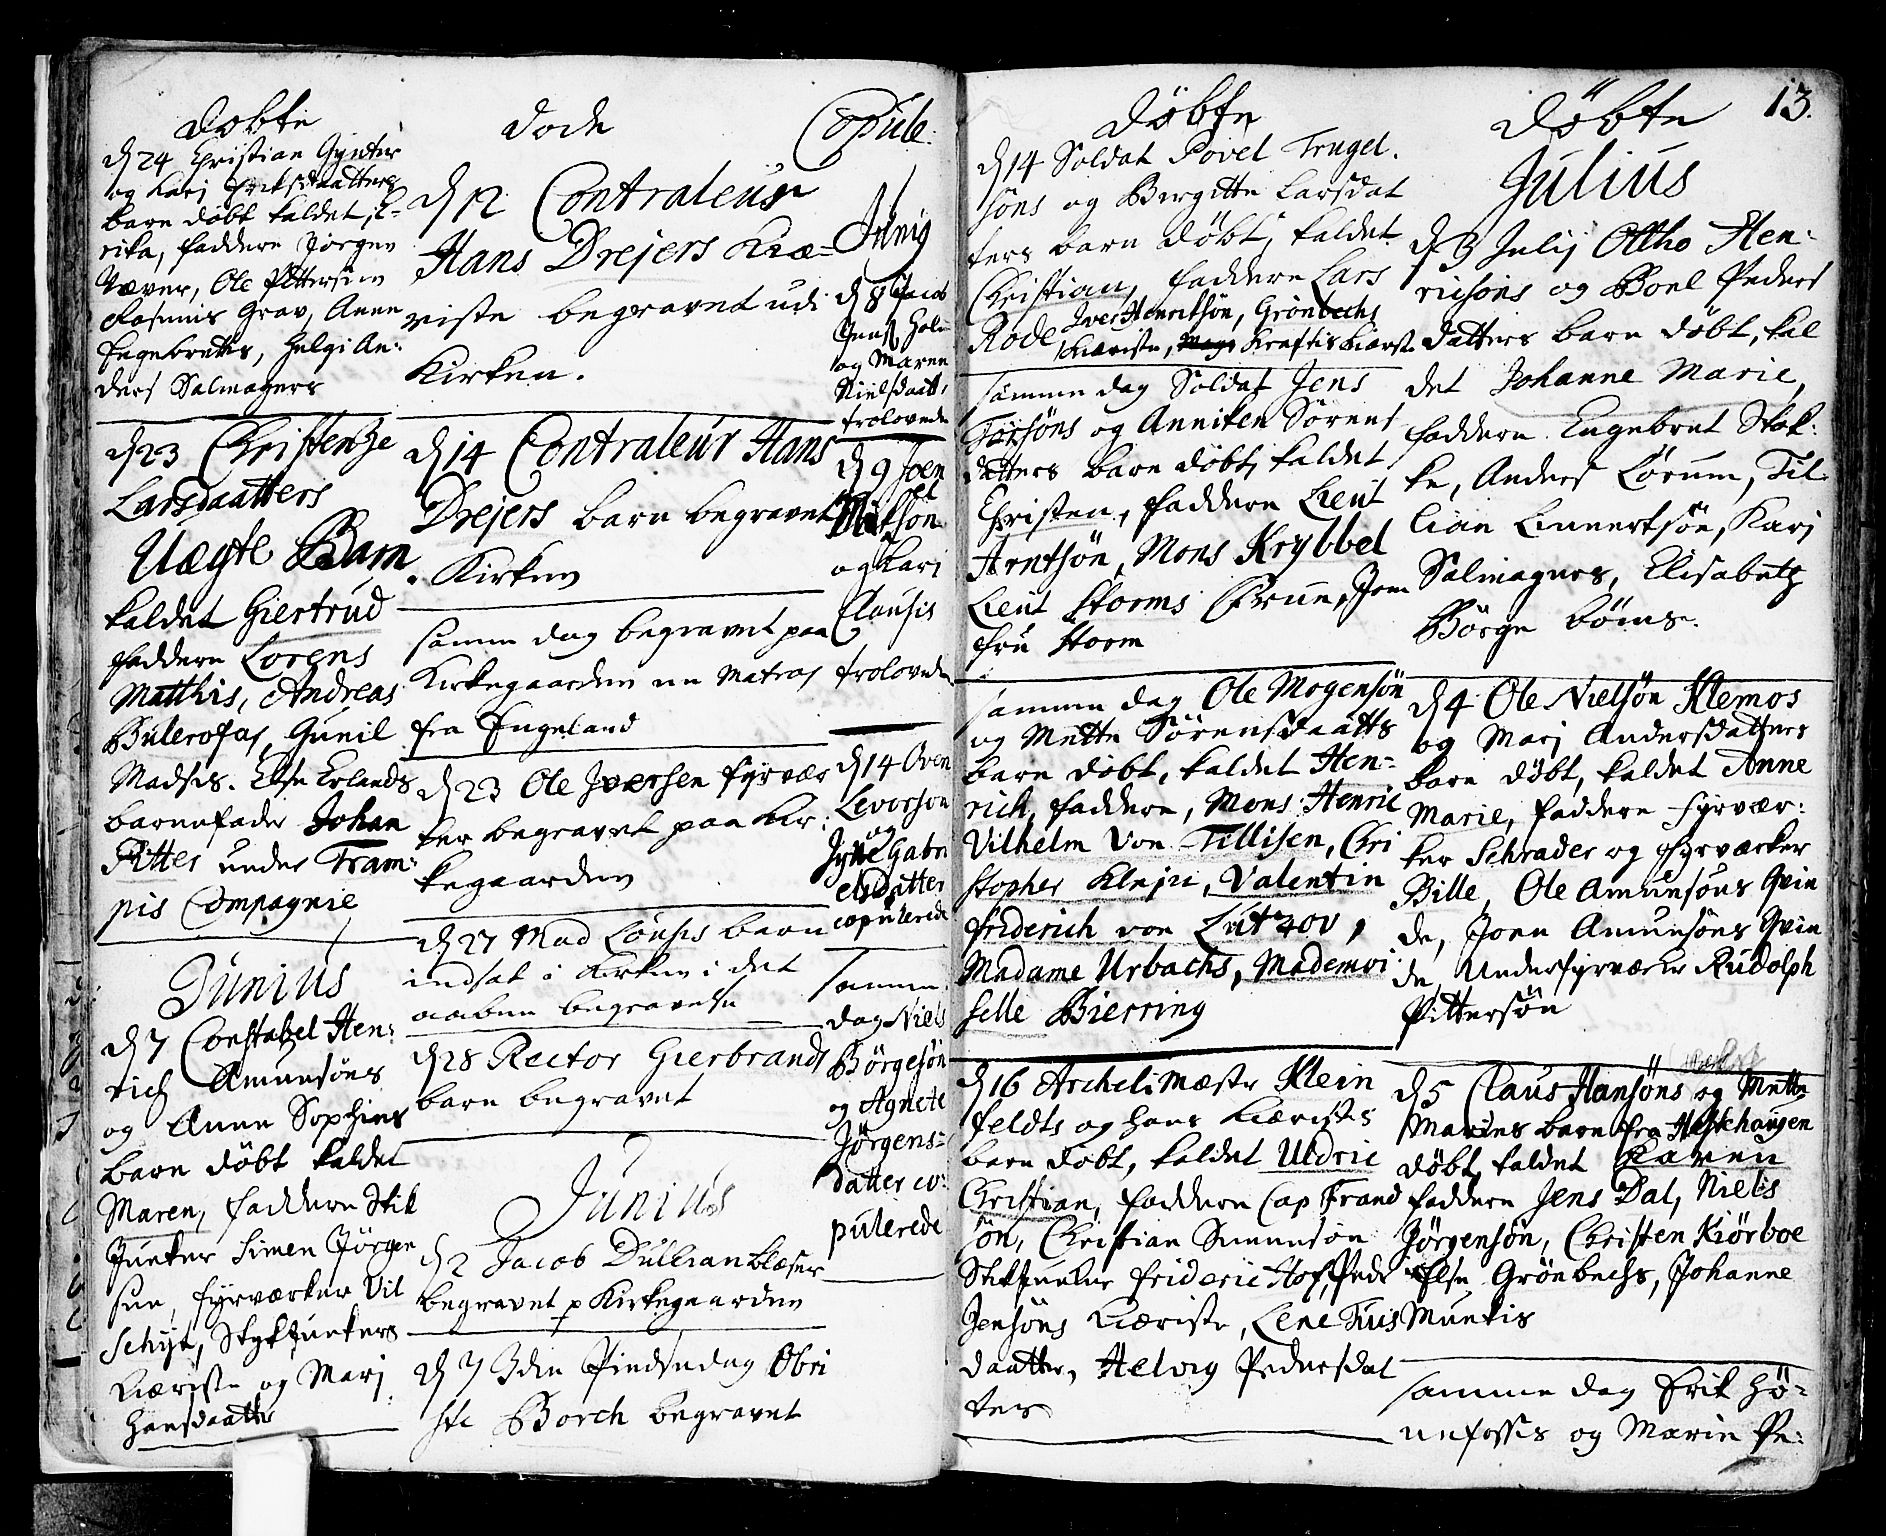 Døbte
d 24 Christian Gynter
og Karj Eriksdaatters
barn døbt kaldet, E-
rika, faddere Jørgen
Væver, Ole Pittersen
Rasmus Grav, Anne
Engebrets, Helgi An:
ders Salmagers
d 23 Christentze
Larsdaatters
Uægte Barn
kaldet Giertrud
faddere Lorens
Matthis, Andreas
Bulerofas, Gunil
Madsis. Else Erlands
barnefader Johan
Pitter under Tram:
pis Compagnie
Junius
d 7 Constabel Hen:
rich Amunsøns
og Anne Sophies
barn døbt kaldet
Maren, faddere Stik
Junker Simen Jørgen
sen, fyrværker Vil
Schyt, Stykjunkers
Kæriste og Marj
Hansdaatter
døde
d 12 Contraleur
Hans Drejers Kiæ-
riste begravet udi
Kirken.
d 14 Contraleur Hans
Drejers barn begravet
i Kirken
samme dag begravet paa
Kirkegaarden en Matros
fra Engeland
d 23 Ole Iversen fyrvær
ker begravet paa Kir:
kegaarden
d 27 Mad Lousis barn
indsat i Kirken i det
aaben begravelse
d 28 Rector Gierbrands
barn begravet
Junius
d 2 Jacob Dullian blæser
begravet p Kirkegaarden
d 7 3die Pindsedag Obri
ste Borch begravet
Copule:
Junij
d 8 Jacob
Jens Holm
og Maren
Nielsdaatt.
trolovede
d 9 Joen
Nilsøn
og Kari
Clausis
trolovede
d 14 Oven
Levorson
og
Jytte Gabri
elsdatter
copulerede
samme
dag Niels
Børgesøn
og Agnete
Jørgens=
datter co:
pulerede
Døbte
d 14 Soldat Povel Truget.
søns og Birgitte Larsdat
ters barn døbt, kaldet
Christian, faddere Lars
Rode, Iver Henriksøn, Grønbechs
Kiæriste, Kraftis Kiærst.
samme dag Soldat Jens
Torsøns og Anniken Sørens
datters barn døbt, kaldet
Christen, faddere Lieut
Arntsøn, Mons Krybbel
Lieut Storms Frue, Jom
fru Storm
samme dag Ole Mogensøn
og Mette Sørensdaatts
barn døbt, kaldet Hen=
rich, faddere, Mons: Henric
Vilhelm von Tillisen, Chri
stopher Klejn, Valentin
friderich von Lutzov,
Madame Urbachs, Mademoi
selle Bierring
d 16 Archelimæstr Klein
feldts og hans Kiæristes
barn døbt, kaldet Uldric
Christian, faddere Cap Frand
søn, Christian Simensøn
Stikjunker frideric Hof, Peder
Jensøns Kiæriste, Lene Tuis
daatter, Helvig Pedersdat
ter
Døbte 13.
Julius
d 3 Julij Ottho Hen:
ricsøns og Boel Peders
datters barn døbt, kal
det Johanne Marie,
faddere Engebret Stok:
ke, Anders Lørum, Til:
lian Linnertsøn, Karj
Salmagers, Elisabetz
Børge bøms.
d 4 Ole Nielsøn Klemos
og Marj Andersdatters
barn døbt, kaldet Anne
Marie, faddere fyrvær:
ker Schrader og fyrværker
Bille, Ole Amunsøns Qvin
de, Joen Amunsøns Qvin
de, Underfyrværker Rudolph
Pittersøn
d 5 Claus Hansøns og Mette
Maries barn fra Hestehaugen
døbt, kaldet Karen
faddere Jens Dal, Niels
Jørgensøn, Christen Kiørboe
Else Grønbechs, Johanne
Munkis
samme dag Erik Hø-
nefossis og Marie Pe: